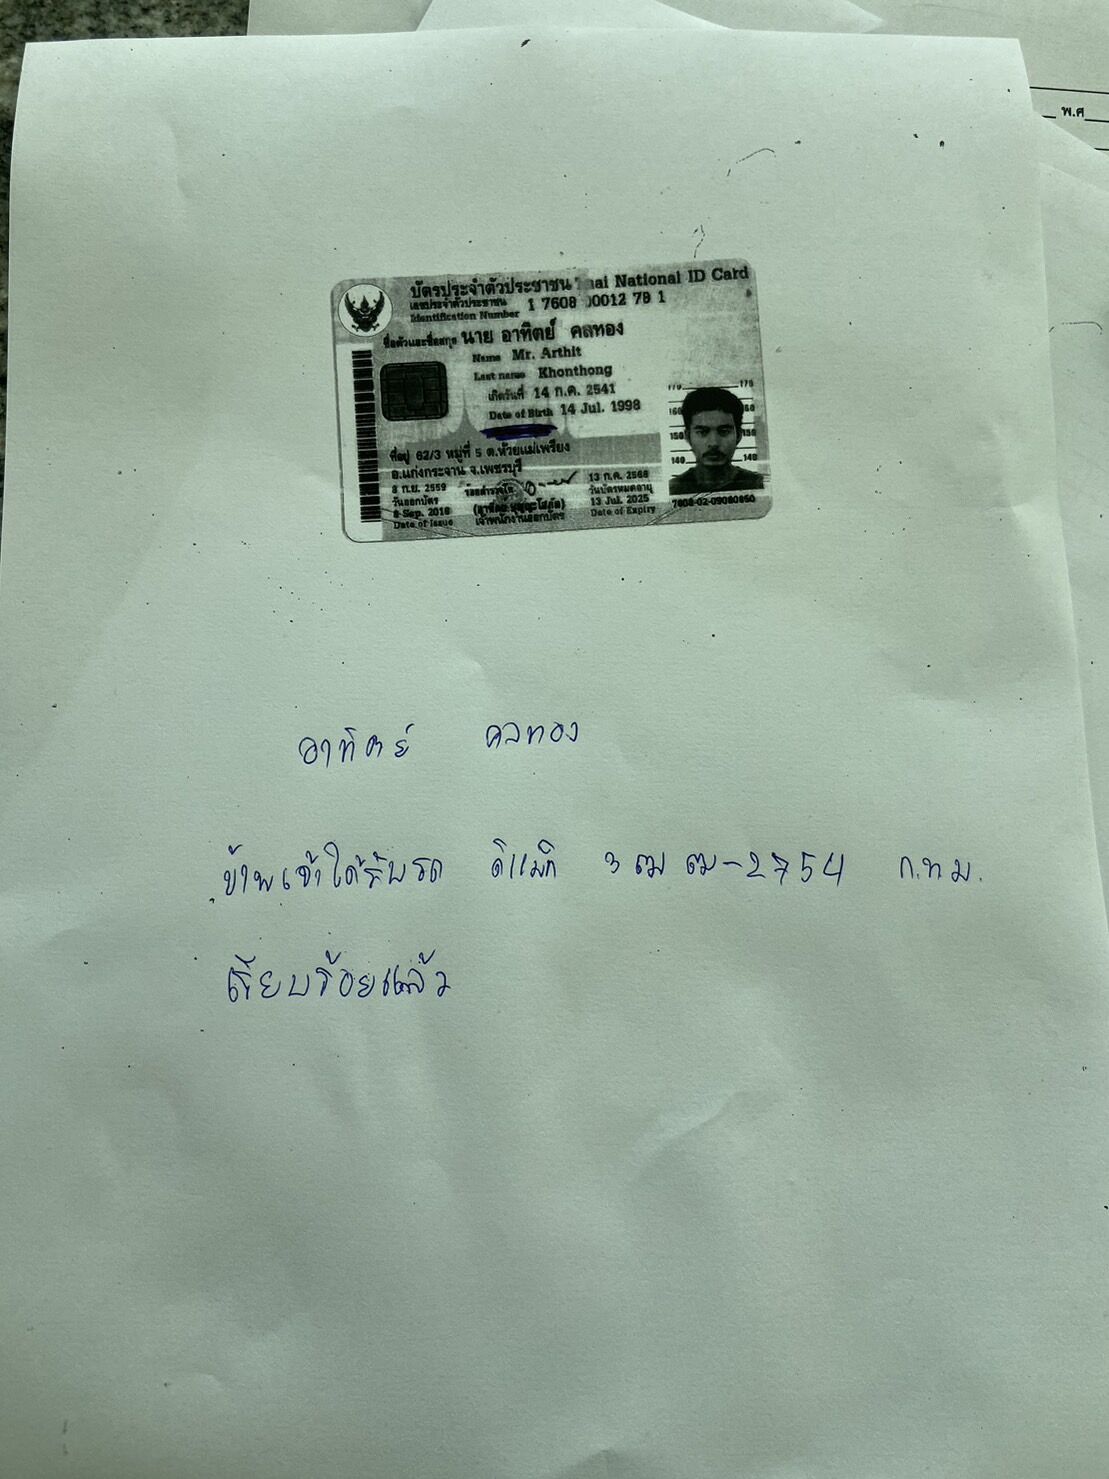 พ.ศ
บัตรประจำตัวประชาชน Thai National ID Card
เลขประจำตัวประชาชน 1 7608 00012 78 1
Identification Number
ชื่อตัวและชื่อสกุล นาย อาทิตย์ คลทอง
Name Mr. Arthit
Last name Khonthong
เกิดวันที่ 14 ก.ค. 2541
Date of Birth 14 Jul. 1998
ที่อยู่ 62/3 หมู่ที่ 5 ต.ห้วยแม่เพรียง
อ.แก่งกระจาน จ.เพชรบุรี
8 ก.ย. 2559
วันออกบัตร
8 Sep. 2016
Date of Issue
เจ้าพนักงานออกบัตร
13 ก.ค. 2568
วันบัตรหมดอายุ
13 Jul. 2025
Date of Expiry
170 175
160 160
150 150
140 140
7608-02-09080850
อาทิตย์ คลทอง
ข้าพเจ้าได้รับรถ ดีแม็ก 3ฒฒ-2754 ก.ท.ม.
เรียบร้อยแล้ว